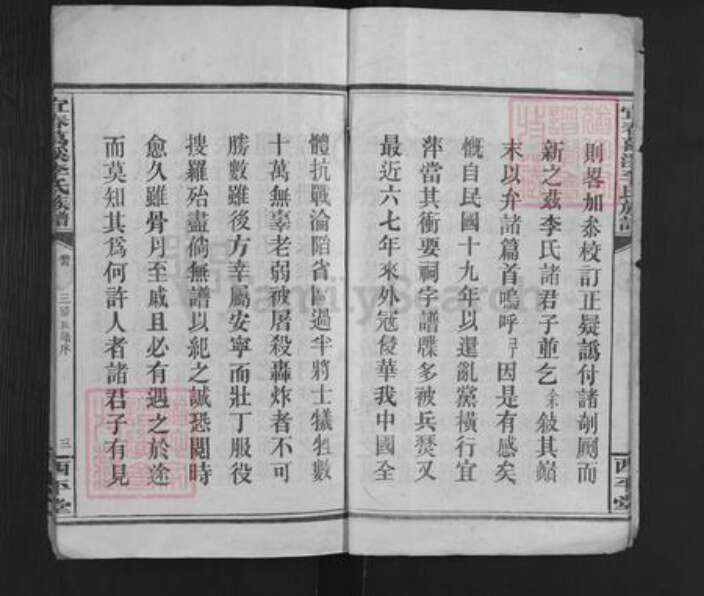 則畧加叅校訂正疑譌付諸剞劂而
新之茲李氏諸君子並乞余敍其巔
末以弁諸篇首嗚呼予因是有感矣
慨自民國十九年以還亂黨橫行宜
萍當其衝要祠宇譜牒多被兵燹又
最近六七年來外冦侵華我中國全
體抗戰淪陷省區過半將士犧牲數
十萬無辜老弱被屠殺轟炸者不可
勝數雖後方幸屬安寧而壯丁服役
搜羅殆盡倘無譜以紀之誠恐閱時
愈久雖骨月至戚且必有遇之於途
而莫知其爲何許人者諸君子有見
宜春葛溪李氏族譜
三
西平堂
FamilySearch